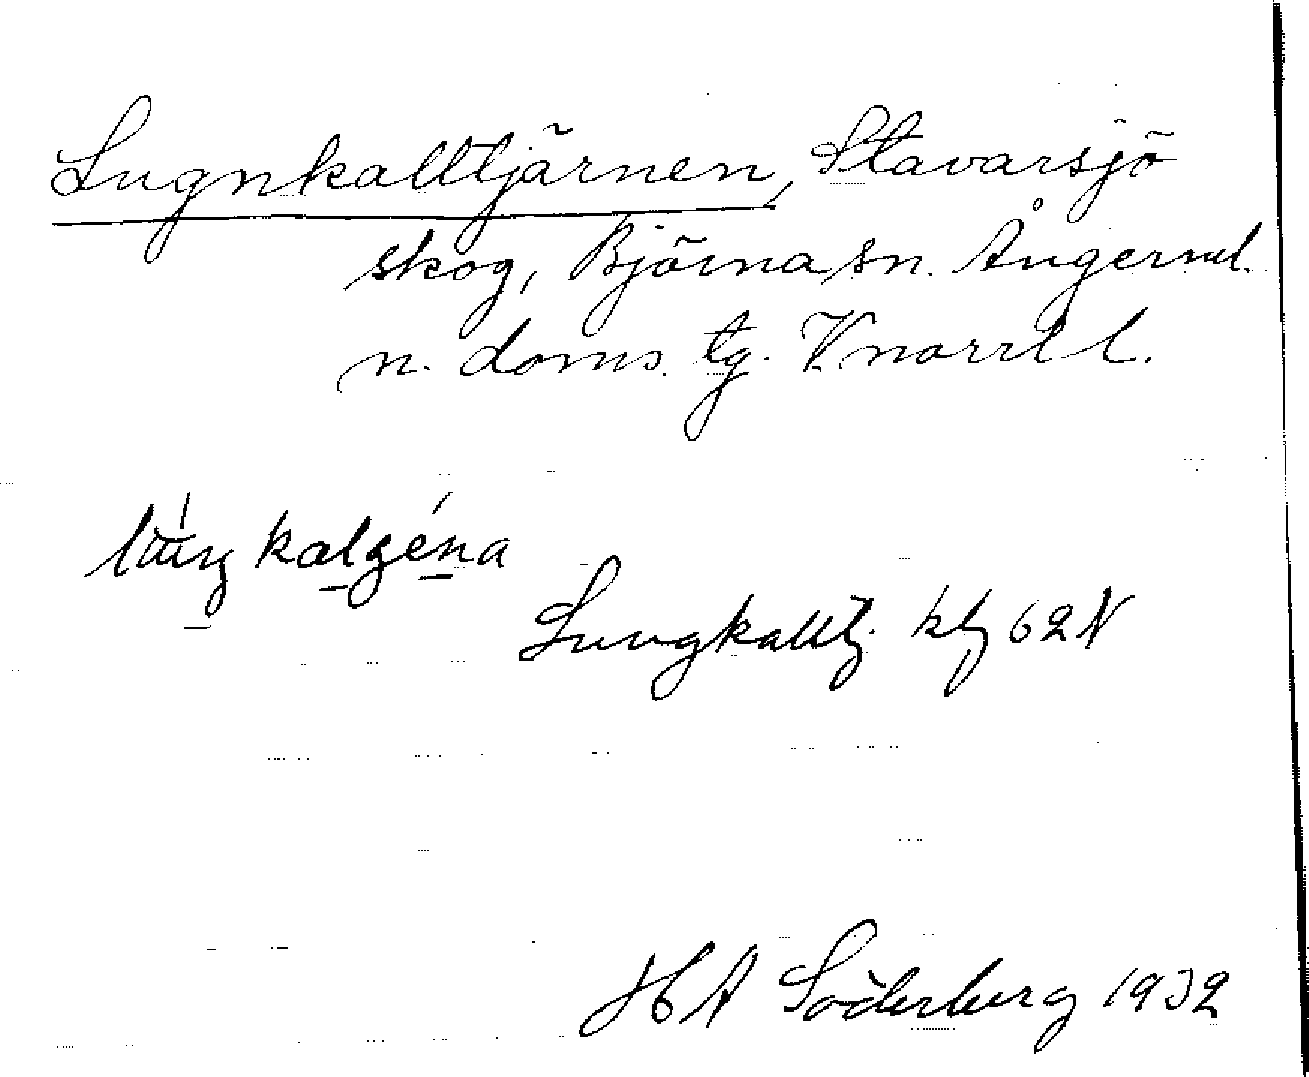 Lugnkalltjärnen, Stavarsjö
skog, Björna sn. Ångerml.
n. doms. tg. V.norrl l.
Lungkalltj. kbl 62 N
H A Söderberg 1932